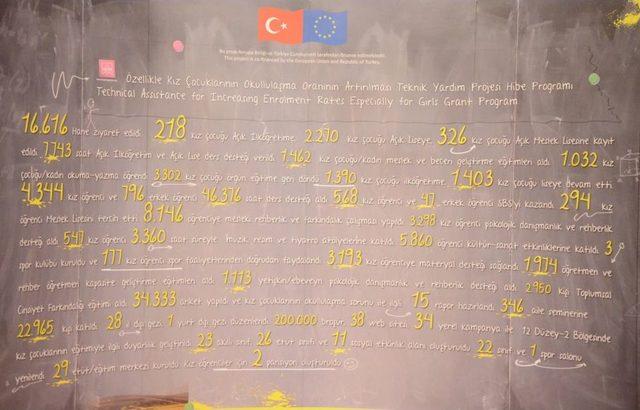 Bu proje Avrupa Birliği ve Türkiye Cumhuriyeti tarafından finanse edilmektedir.
This project is co-financed by the European Union and Republic of Turkey.
Özellikle Kız Çocuklarının Okullulaşma Oranının Artırılması Teknik Yardım Projesi Hibe Programı
Technical Assistance for Increasing Enrolment Rates Especially for Girls Grant Program
16.616 Hane ziyaret edildi. 278 kız çocuğu Açık İlköğretime, 2.270 kız çocuğu Açık Liseye, 326 kız çocuğu Açık Meslek Lisesine kayıt
edildi. 7743 saat Açık İlköğretim ve Açık Lise ders desteği verildi. 1.462 kız çocuğu/kadın meslek ve beceri geliştirme eğitimleri aldı. 1.032 kız
çocuğu/kadın okuma-yazma öğrendi. 3.302 kız çocuğu örgün eğitime geri döndü. 1.390 kız çocuğu ilköğretime, 1.403 kız çocuğu liseye devam etti.
4.344 kız öğrenci ve 796 erkek öğrenci 46.376 saat ders desteği aldı. 568 kız öğrenci ve 47 erkek öğrenci SBS'yi kazandı. 294 kız
öğrenci Meslek Lisesini tercih etti. 8.746 öğrenciye mesleki rehberlik ve farkındalık çalışması yapıldı. 3.298 kız öğrenci psikolojik danışmanlık ve rehberlik
desteği aldı. 547 kız öğrenci 3.360 saat süreyle müzik, resim ve tiyatro atölyelerine katıldı. 5.860 öğrenci kültür-sanat etkinliklerine katıldı. 3
spor kulübü kuruldu ve 177 kız öğrenci spor faaliyetlerinden doğrudan faydalandı. 3.193 kız öğrenciye materyal desteği sağlandı. 1.974 öğretmen ve
rehber öğretmen kapasite geliştirme eğitimleri aldı. 1.773 yetişkin/ebeveyn psikolojik danışmanlık ve rehberlik desteği aldı. 2950 kişi Toplumsal
Cinsiyet Farkındalığı eğitimi aldı. 34.333 anket yapıldı ve kız çocuklarının okullulaşma sorunu ile ilgili 15 rapor hazırlandı. 346 aile seminerine
22.965 kişi katıldı. 28 il dışı gezi, 1 yurt dışı gezi düzenlendi. 200.000 broşür, 38 web sitesi, 34 yerel kampanya ile 12 Düzey-2 Bölgesinde
kız çocuklarının eğitimiyle ilgili duyarlılık geliştirildi. 23 akıllı sınıf, 26 etüt sınıfı ve 11 sosyal etkinlik alanı oluşturuldu. 22 sınıf ve 1 spor salonu
yenilendi. 29 etüt/eğitim merkezi kuruldu. Kız öğrenciler için 2 pansiyon oluşturuldu